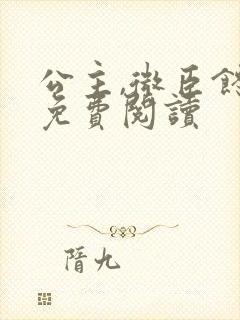 公主,微臣
免費閱讀
隋九